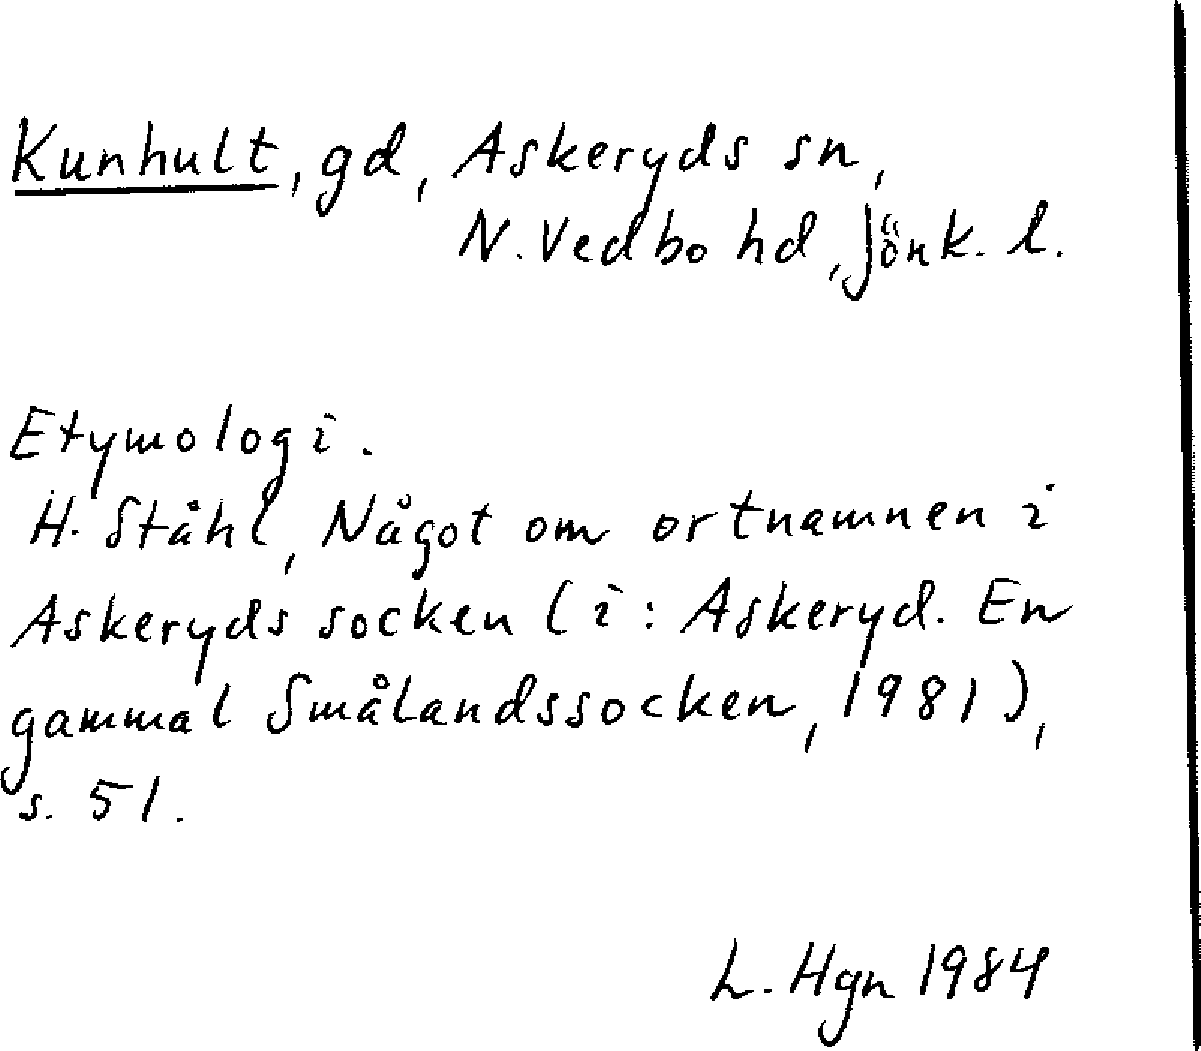 Kunhult, gd, Askeryds sn,
N. Vedbo hd, Jönk. l.
Etymologi.
H. Ståhl, Något om ortnamnen i
Askeryds socken (i: Askeryd. En
gammal Smålandssocken, 1981),
s. 51.
L. Hgn 1984